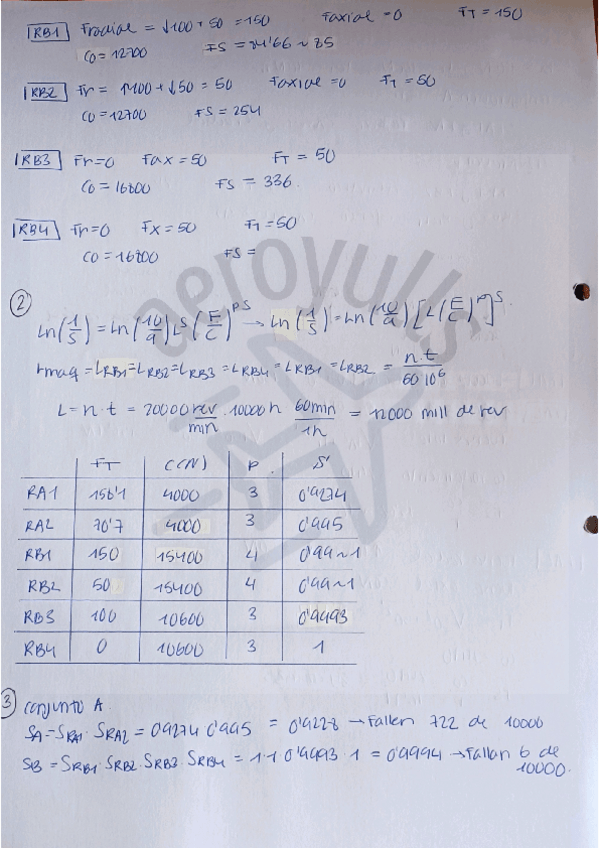 RB1 Fradial = ↓100 + 50 = 150 Faxial = 0 FT = 150
C0 = 12700 FS = 84'66 ~ 85
RB2 Fr = ↑100 + ↓50 = 50 Faxial = 0 FT = 50
C0 = 12700 FS = 254
RB3 Fr = 0 Fax = 50 FT = 50
C0 = 16800 FS = 336
RB4 Fr = 0 Fx = 50 FT = 50
C0 = 16800 FS =
aeroyulls
2
Ln(1/S) = Ln(10/9) L^S (F/C)^PS → Ln(1/S) = Ln(10/9) [L (F/C)^P]^S
Lmaq = LRB1 = LRB2 = LRB3 = LRB4 = LRB1 = LRB2 = n·t / 60 10^6
L = n·t = 20000 rev/min · 10000 h 60min/1h = 12000 mill de rev
FT C(N) P S
RA1 156'1 4000 3 0'9274
RA2 70'7 4000 3 0'995
RB1 150 15400 4 0'99~1
RB2 50 15400 4 0'99~1
RB3 100 10600 3 0'9993
RB4 0 10600 3 1
3 conjunto A
SA = SRA1 · SRA2 = 0'9274 0'995 = 0'9228 → Fallen 722 de 10000
SB = SRB1 · SRB2 · SRB3 · SRB4 = 1·1 0'9993 · 1 = 0'9994 → Fallan 6 de
10000.